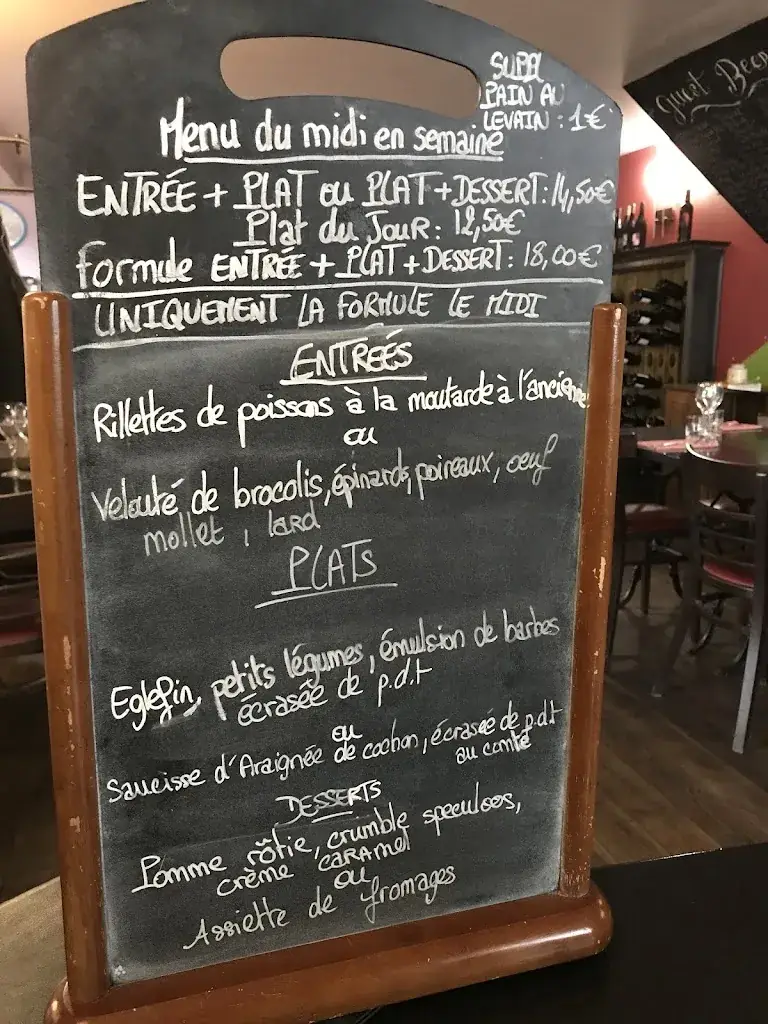 SUPPL
PAIN AU
LEVAIN : 1€
Menu du midi en semaine
ENTRÉE + PLAT ou PLAT + DESSERT : 14,50€
Plat du Jour : 12,50€
formule ENTRÉE + PLAT + DESSERT : 18,00€
UNIQUEMENT LA FORMULE LE MIDI
ENTREÉS
Rillettes de poissons à la moutarde à l'ancienne
ou
Velouté de brocolis, épinards, poireaux, oeuf
mollet, lard
PLATS
Eglefin, petits légumes, émulsion de barbes
écrasée de p.d.t
ou
Saucisse d'Araignée de cochon, écrasée de p.d.t
au comté
DESSERTS
Pomme rôtie, crumble speculoos,
crème caramel
ou
Assiette de fromages
Guest Beer